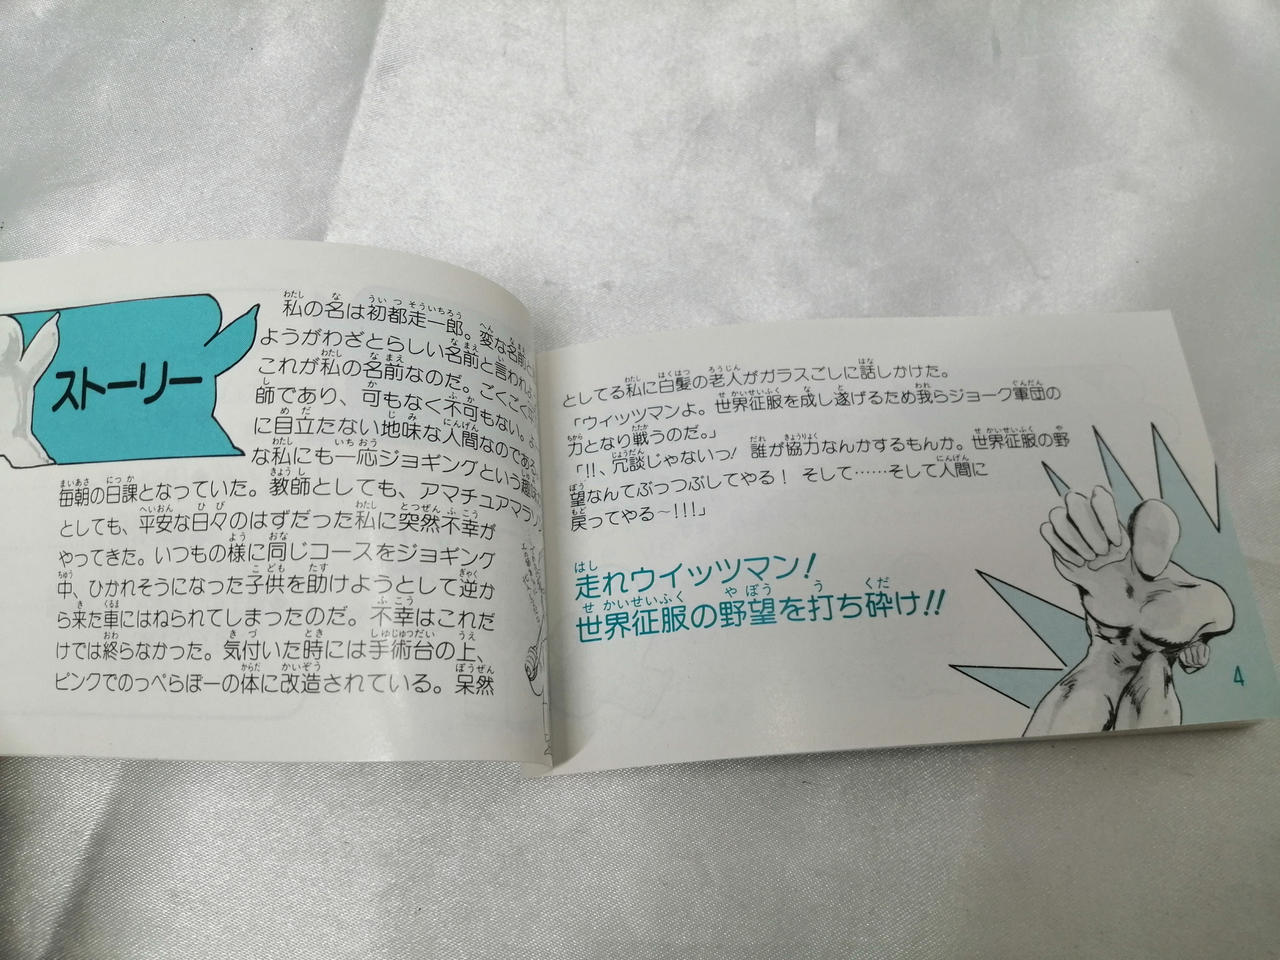 ストーリー
私の名は初都走一郎。変な名前
ようがわざとらしい名前と言われ
これが私の名前なのだ。ごくごく
師であり、可もなく不可もない。
に目立たない地味な人間なのである。
な私にも一応ジョギングという趣味
毎朝の日課となっていた。教師としても、アマチュアマラソン
としても、平安な日々のはずだった私に突然不幸が
やってきた。いつもの様に同じコースをジョギング
中、ひかれそうになった子供を助けようとして逆か
ら来た車にはねられてしまったのだ。不幸はこれだ
けでは終らなかった。気付いた時には手術台の上、
ピンクでのっぺらぼーの体に改造されている。呆然
としてる私に白髪の老人がガラスごしに話しかけた。
「ウィッツマンよ。世界征服を成し遂げるため我らジョーク軍団の
力となり戦うのだ。」
「!!、冗談じゃないっ! 誰が協力なんかするもんか。世界征服の野
望なんてぶっつぶしてやる! そして……そして人間に
戻ってやる〜!!!」
走れウイッツマン!
世界征服の野望を打ち砕け!!
4